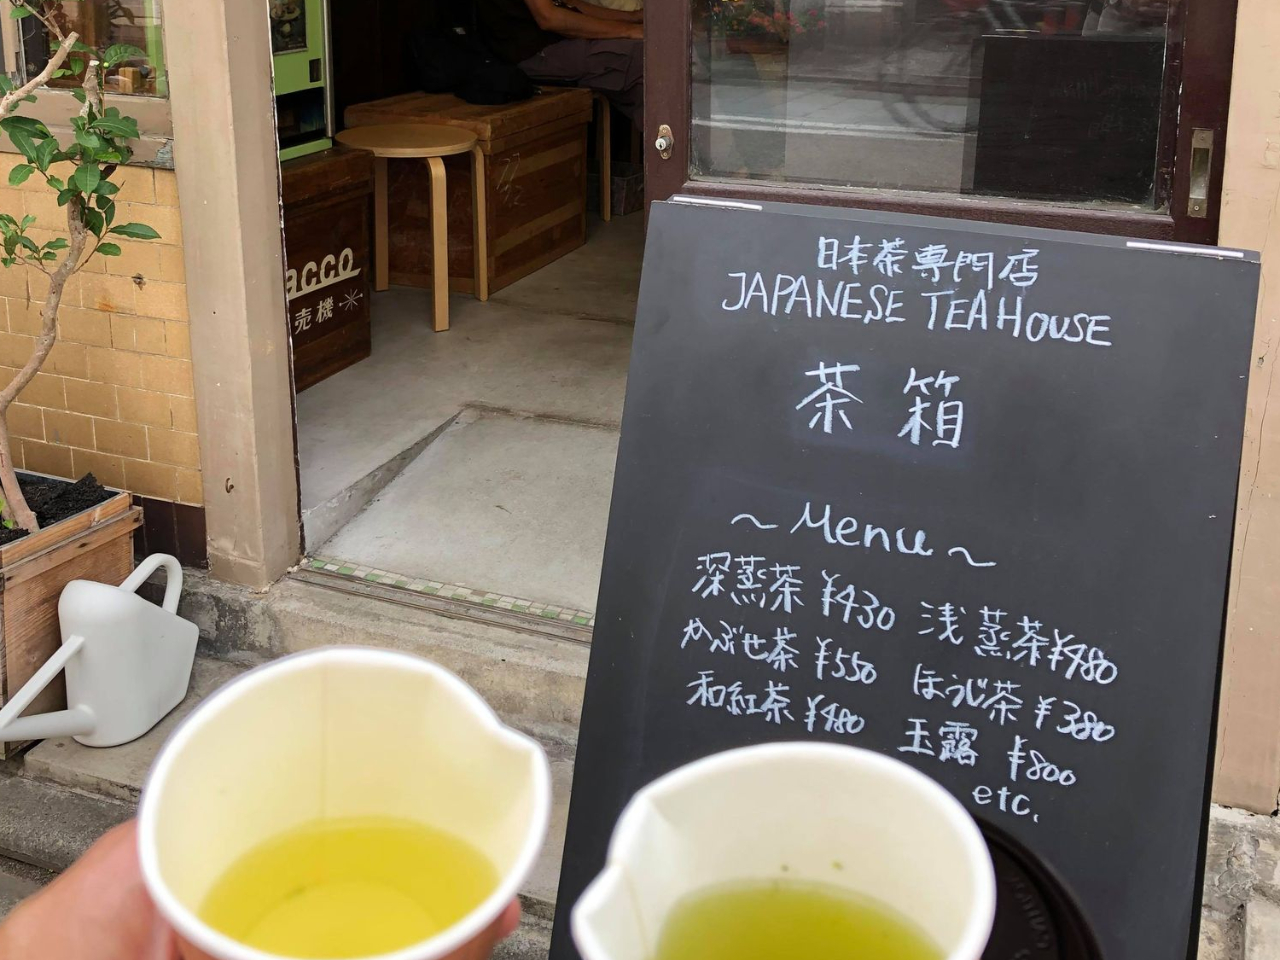 日本茶専門店
JAPANESE TEA HOUSE
茶箱
~Menu~
深蒸茶 ¥430 浅蒸茶 ¥480
かぶせ茶 ¥550 ほうじ茶 ¥380
和紅茶 ¥480 玉露 ¥800
etc.
acco
売機